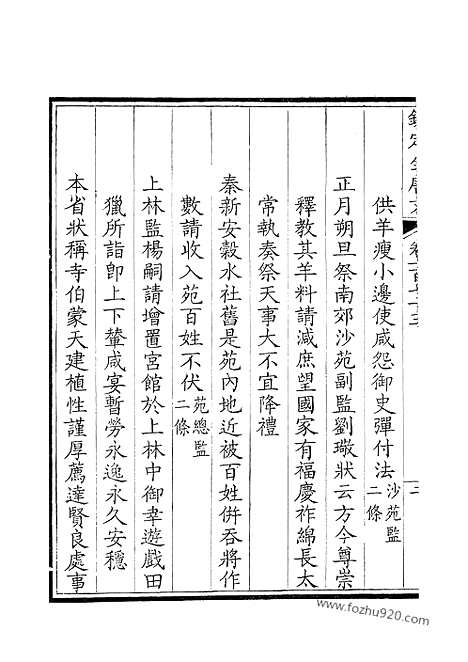 欽定全唐文
供羊瘦小邊使咸怨御史彈付法沙苑監二條
正月朔旦祭南郊沙苑副監劉璥狀云方今尊崇
釋教其羊料請減庶望國家有福慶祚綿長太
常執奏祭天事大不宜降禮
秦新安穀水社舊是苑內地近被百姓併吞將作
數請收入苑百姓不伏苑總監二條
上林監楊嗣請增置宮館於上林中御幸遊戲田
獵所詣卽上下輦咸宴暫勞永逸永久安穩
本省狀稱寺伯蒙天建植性謹厚薦達賢良處事
www.fozhu920.com